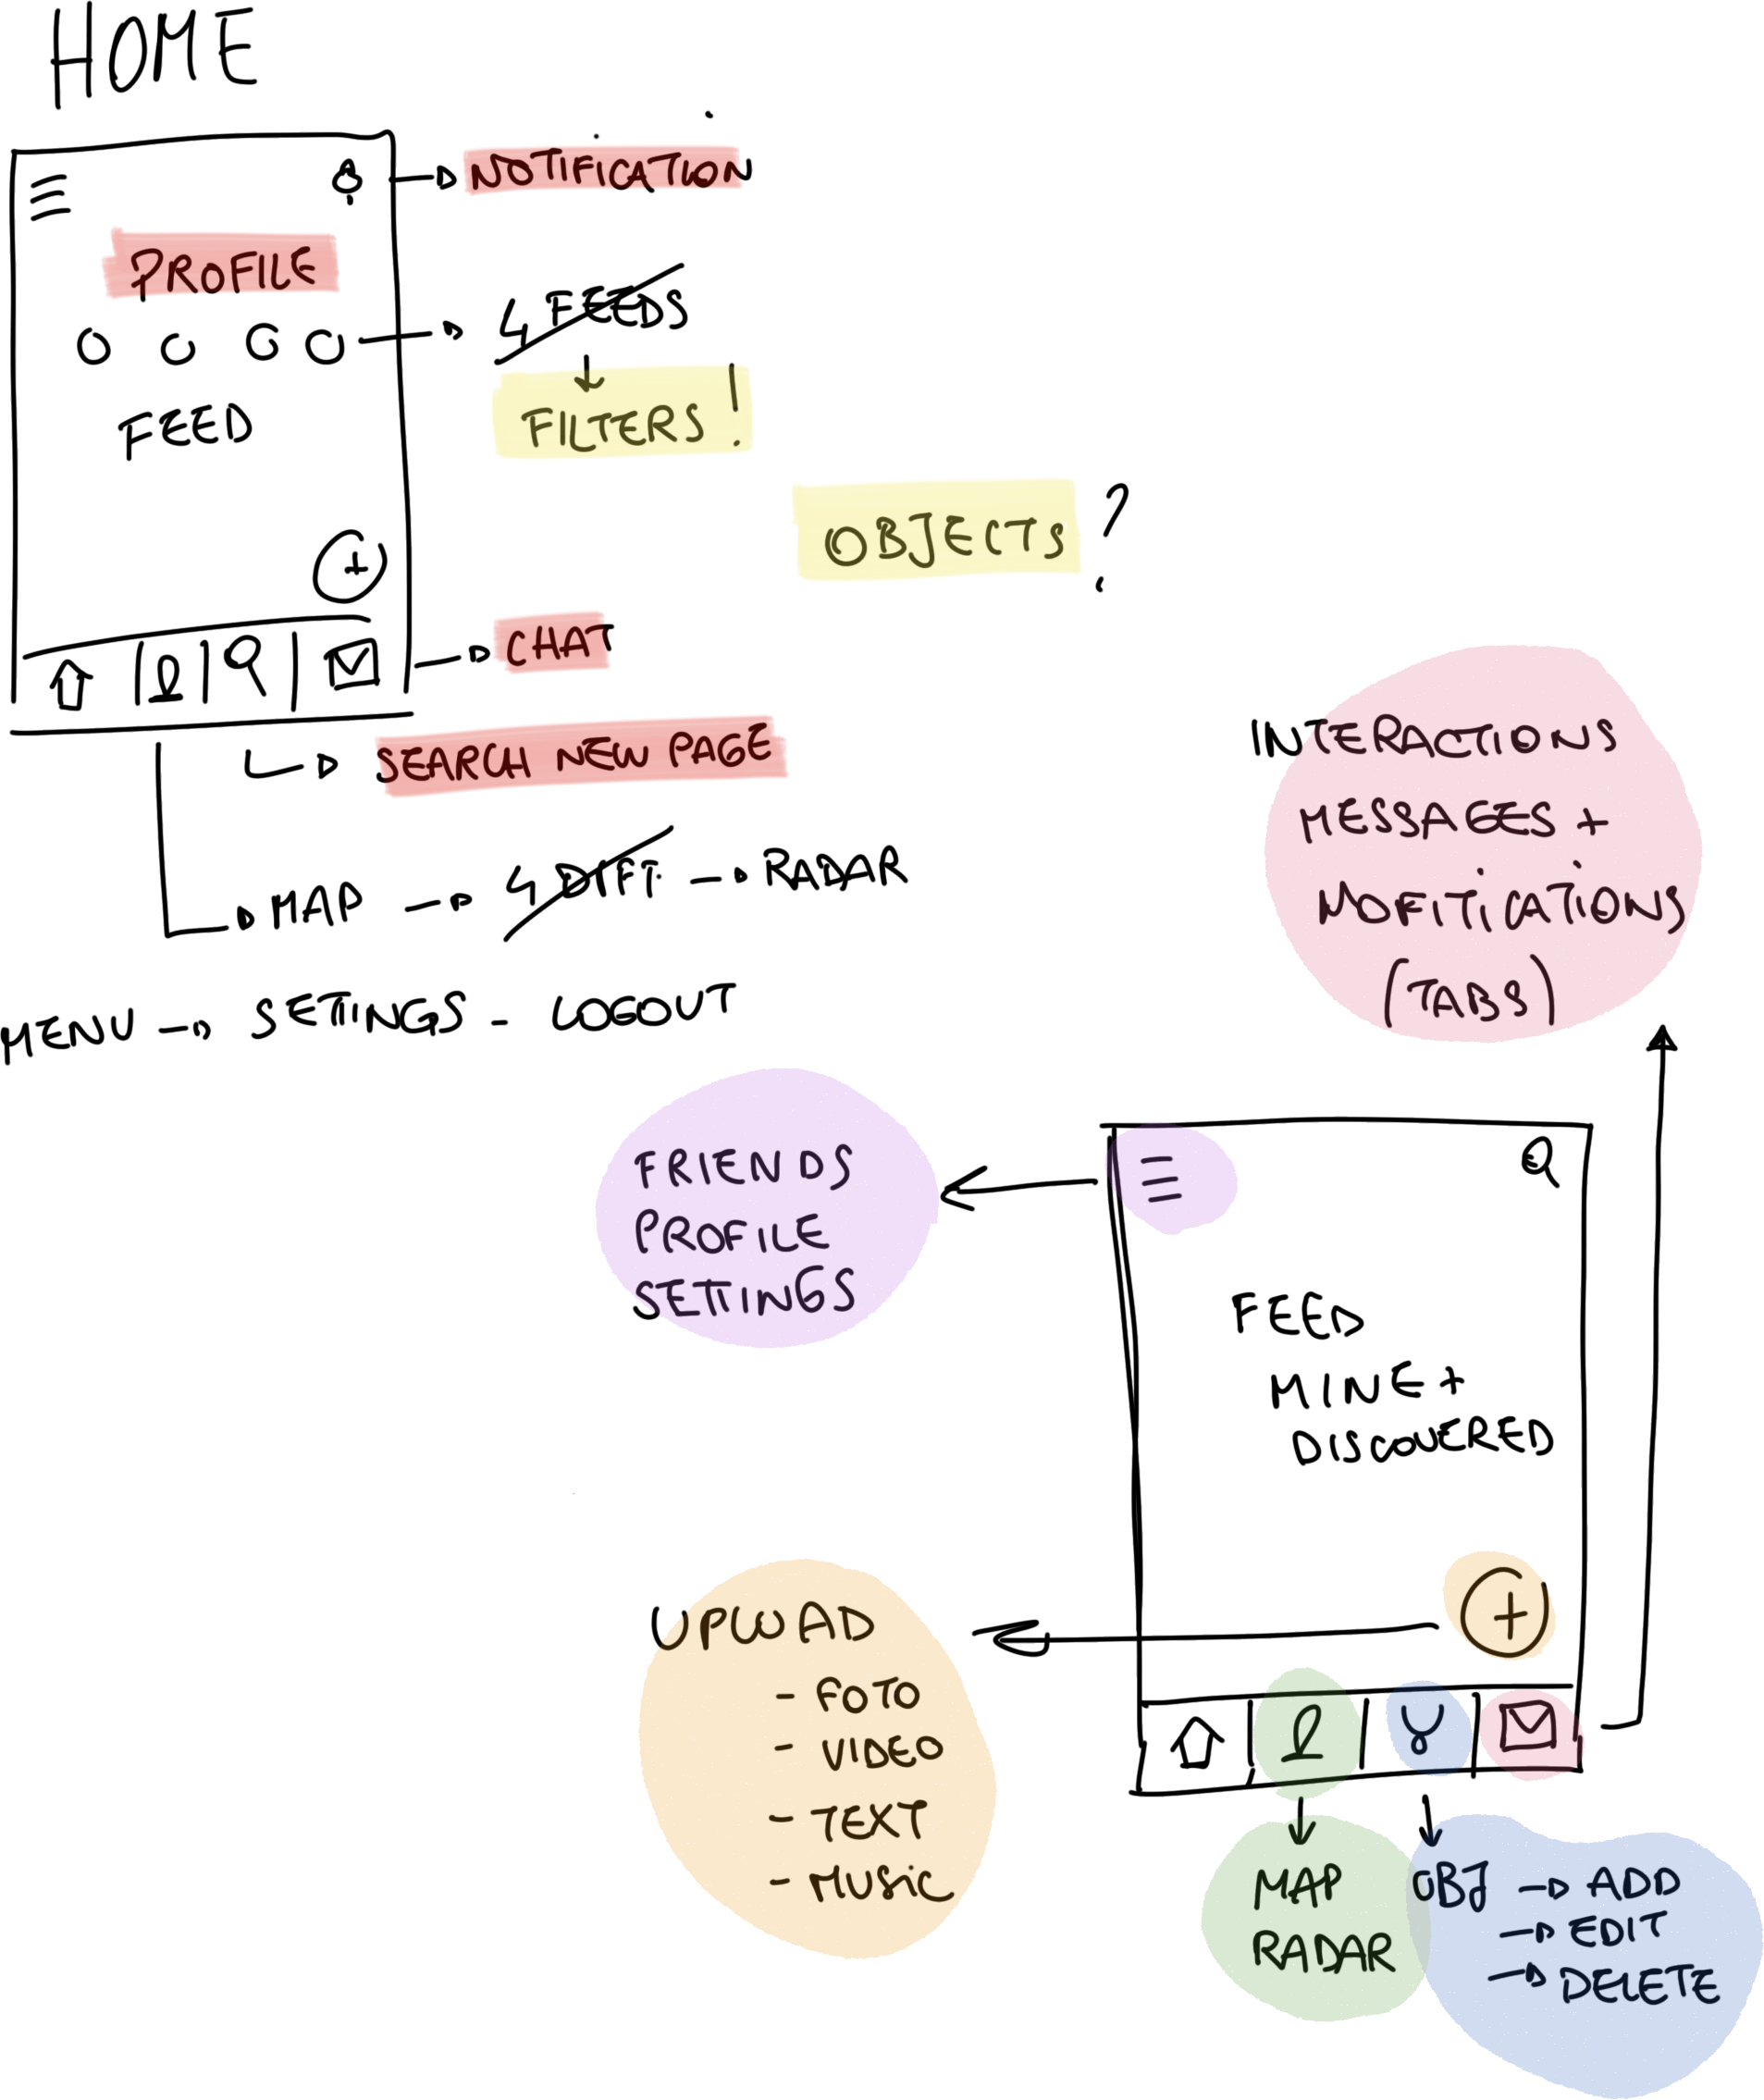 HOME
NOTIFICATION
PROFILE
4 FEEDS
FILTERS!
FEED
OBJECTS?
+
CHAT
SEARCH NEW PAGE
MAP 4 DIFF. RADAR
MENU SETTINGS - LOGOUT
INTERACTIONS
MESSAGES +
NOFITICATIONS
(TABS)
FRIENDS
PROFILE
SETTINGS
FEED
MINE +
DISCOVERED
+
UPLOAD
- FOTO
- VIDEO
- TEXT
- MUSIC
MAP
RADAR
OBJ ADD
EDIT
DELETE